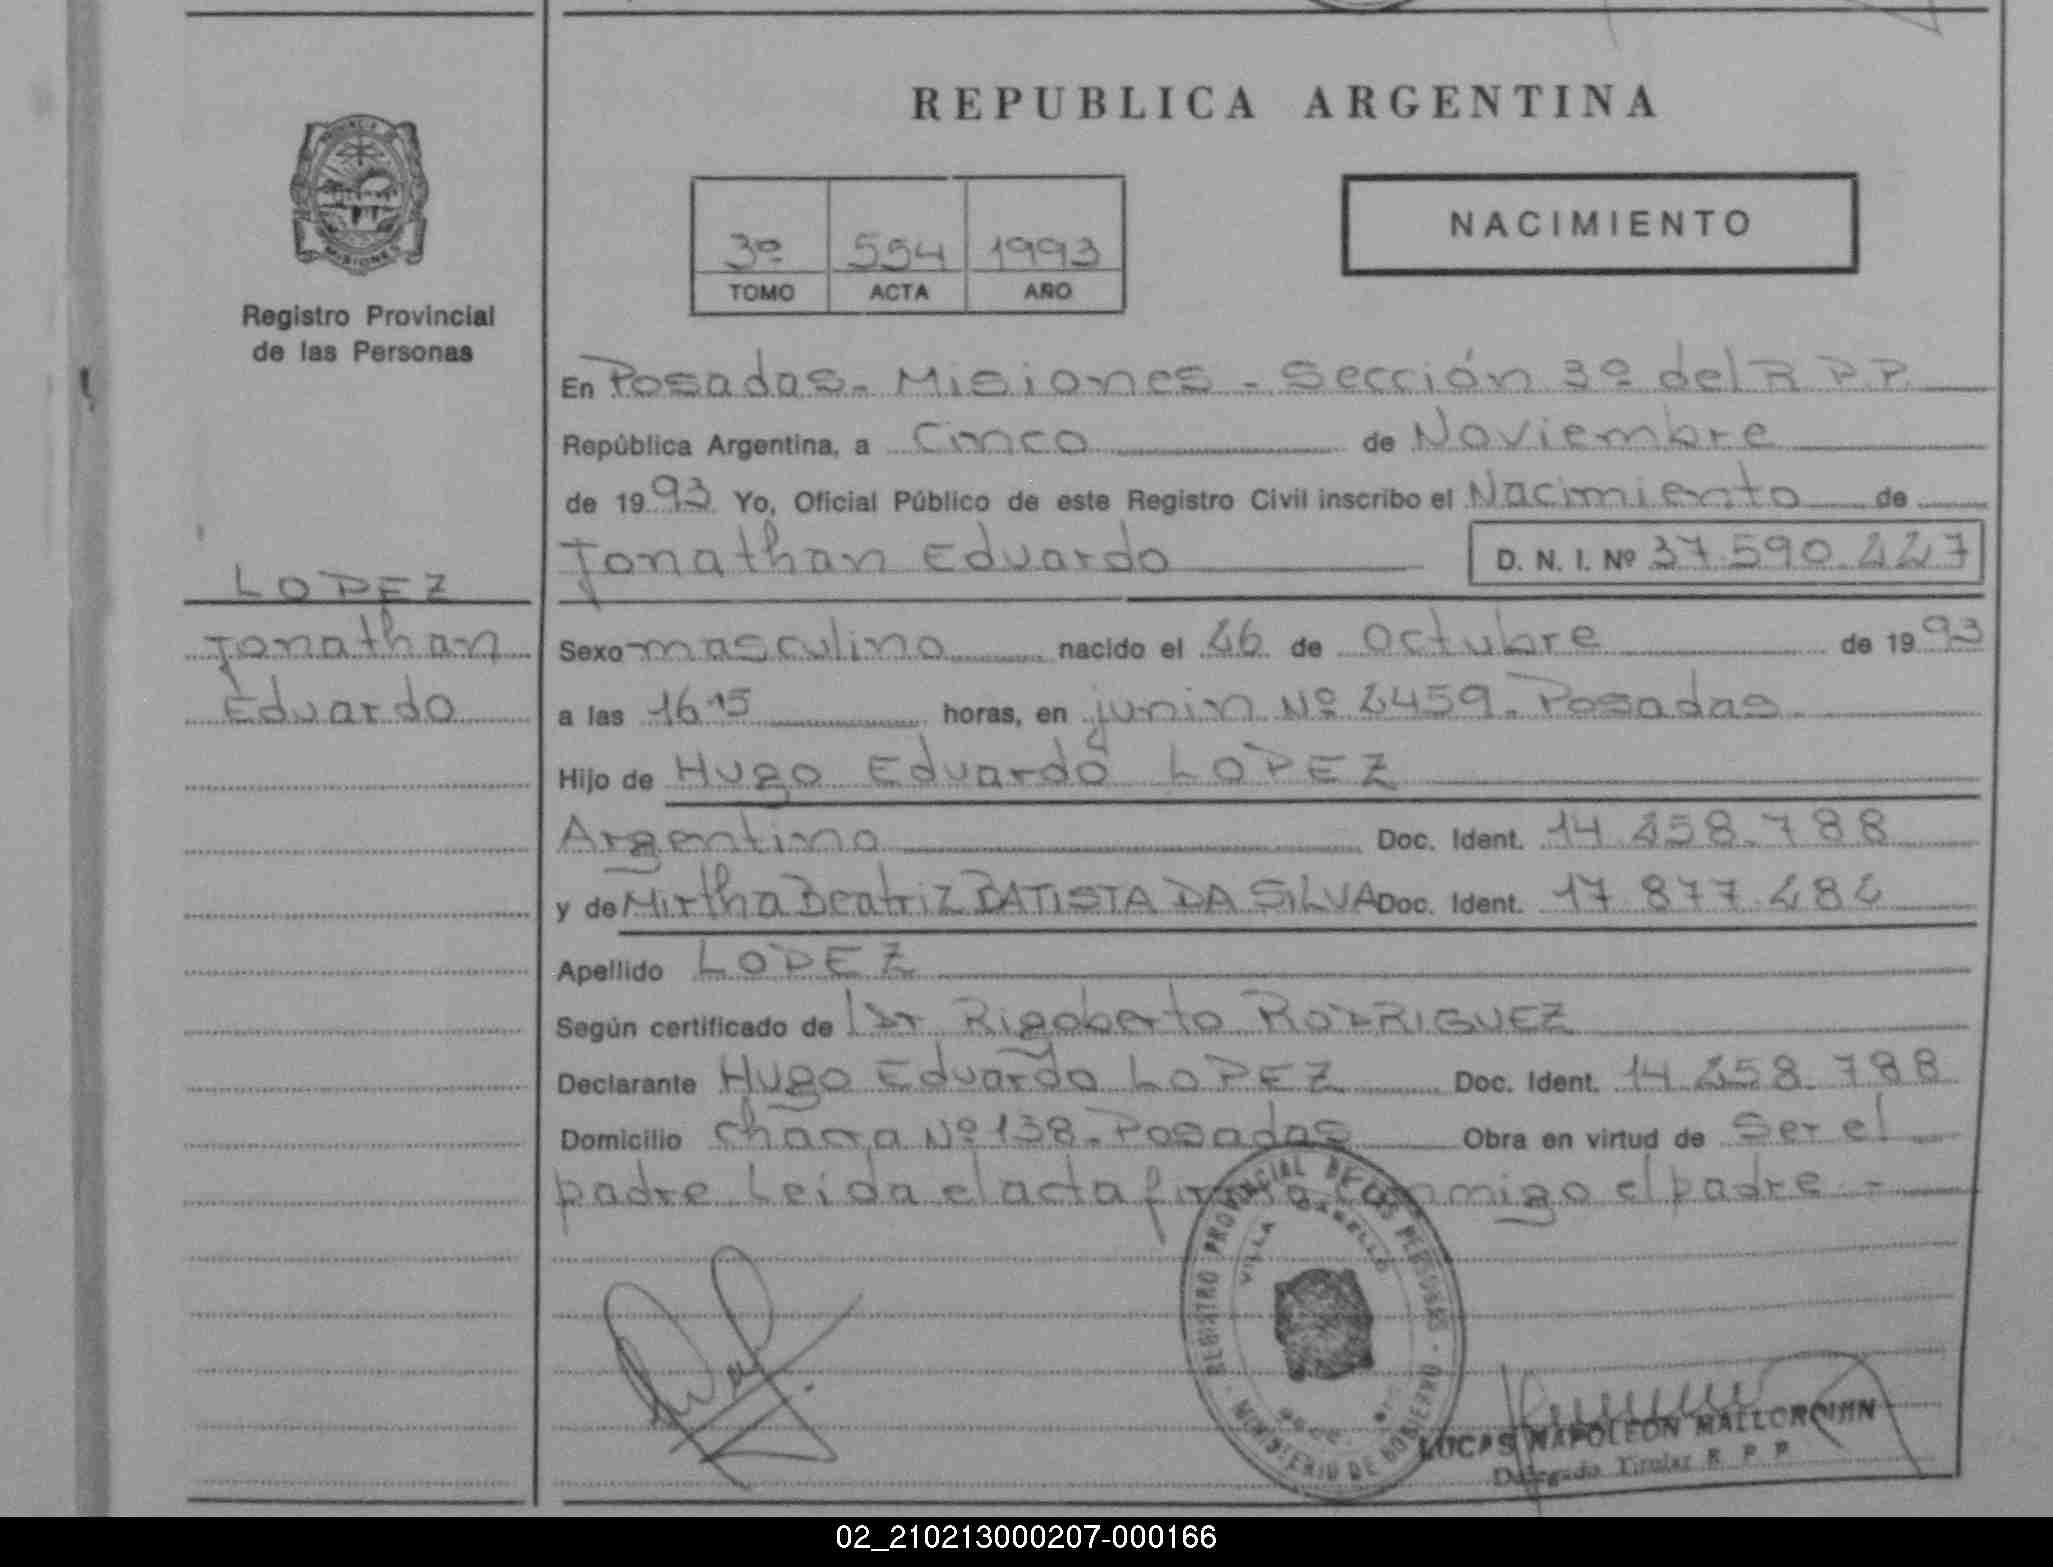 REPUBLICA ARGENTINA
PROVINCIA DE
MISIONES
Registro Provincial
de las Personas
3º 554 1993
TOMO ACTA AÑO
NACIMIENTO
En Posadas - Misiones - Sección 3º del R P P
República Argentina, a Cinco de Noviembre
de 1993 Yo, Oficial Público de este Registro Civil inscribo el Nacimiento de
Jonathan Eduardo D. N. I. Nº 37.590.227
LOPEZ
Jonathan
Eduardo
Sexo masculino nacido el 26 de Octubre de 1993
a las 16 15 horas, en junin Nº 2459 - Posadas
Hijo de Hugo Eduardo LOPEZ
Argentino Doc. Ident. 14.258.788
y de Mirtha Beatriz BATISTA DA SILVA Doc. Ident. 17.877.282
Apellido LOPEZ
Según certificado de Dr Rigoberto RODRIGUEZ
Declarante Hugo Eduardo LOPEZ Doc. Ident. 14.258.788
Domicilio chacra Nº 138 - Posadas Obra en virtud de Ser el
padre Leida el acta firma conmigo el padre -
REGISTRO PROVINCIAL DE LAS PERSONAS
VILLA CABELLO
MINISTERIO DE GOBIERNO
LUCAS NAPOLEON
Delegado Titular R. P. P.
02_210213000207-000166